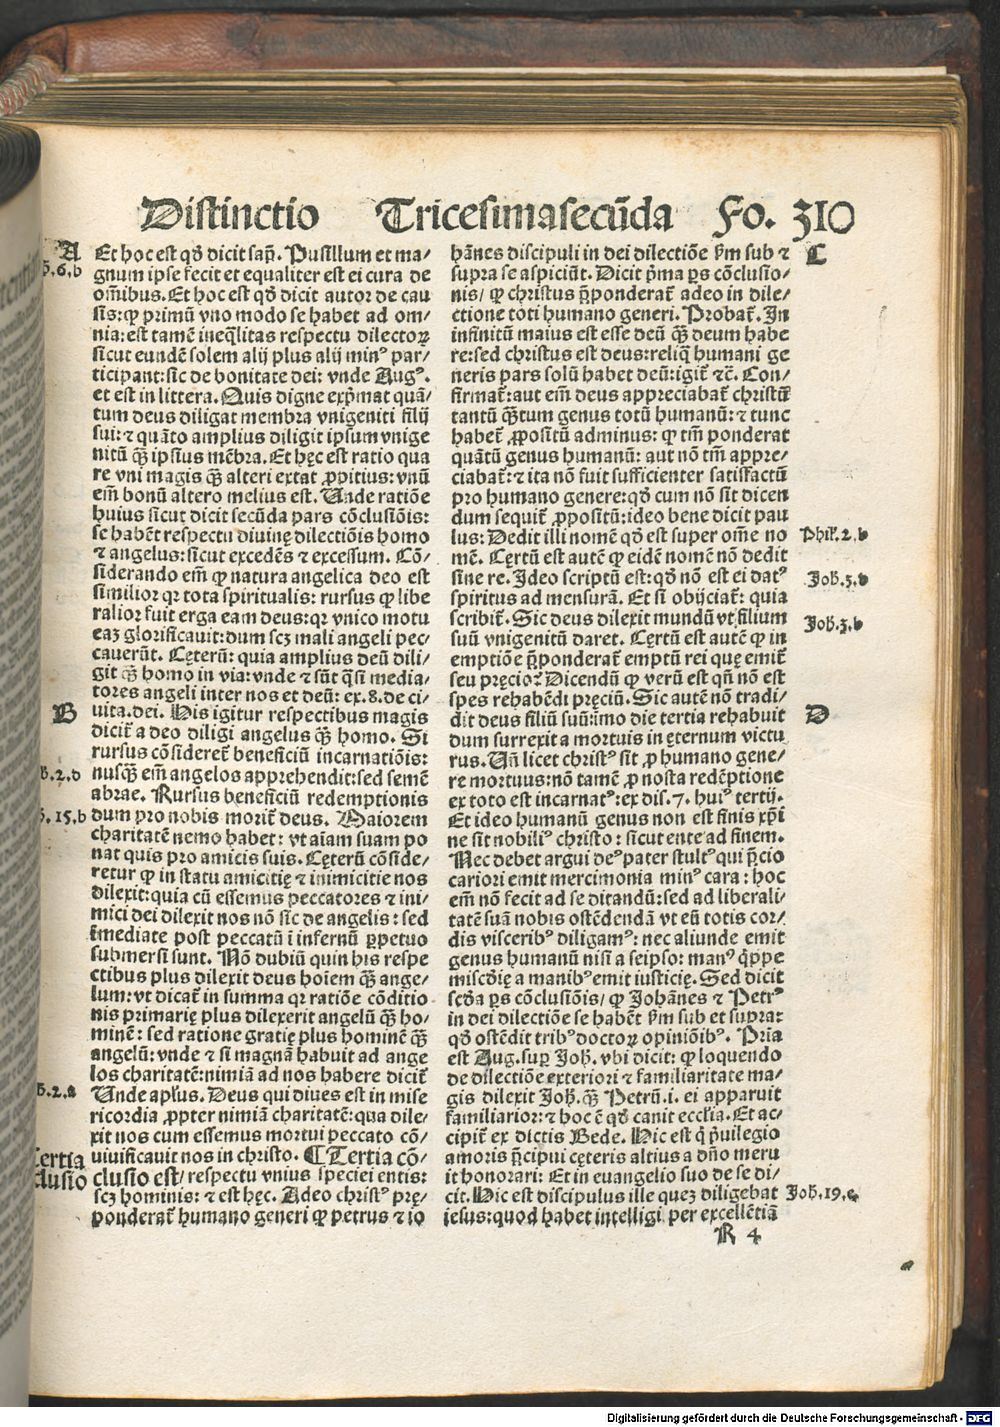 Distinctio Tricesimasecūda Fo. 310
A
Et hoc est qđ dicit sap̄. Pusillum et ma/
.6.b
gnum ipse fecit et equaliter est ei cura de
om̄ibus. Et hoc est qđ dicit autor de cau
sis: ꝙ primū vno modo se habet ad om/
nia: est tamē ineq̄litas respectu dilectoꝝ
sicut eundē solem alij plus alij minꝰ par/
ticipant: sic de bonitate dei: vnde Augꝰ.
et est in littera. Quis digne exp̄mat quā/
tum deus diligat membra vnigeniti filij
sui: ⁊ quāto amplius diligit ipsum vnige
nitū q̄ꝫ ipsius mēbra. Et hęc est ratio qua
re vni magis q̄ꝫ alteri extat ꝓpitius: vnū
em̄ bonū altero melius est. Unde ratiōe
huius sicut dicit secūda pars cōclusiōis:
se habēt respectu diuinę dilectiōis homo
⁊ angelus: sicut excedēs ⁊ excessum. Cō/
siderando em̄ ꝙ natura angelica deo est
similior qꝛ tota spiritualis: rursus ꝙ libe
ralior fuit erga eam deus: qꝛ vnico motu
eaꝫ glorificauit: dum scꝫ mali angeli pec/
cauerūt. Cęterū: quia amplius deū dili/
git q̄ꝫ homo in via: vnde ⁊ sūt q̄si media/
tores angeli inter nos et deū: ex. 8. de ci/
B
uita. dei. His igitur respectibus magis
diciť a deo diligi angelus q̄ꝫ homo. Si
rursus cōsidereť beneficiū incarnatiōis:
.2.d
nusq̄ꝫ em̄ angelos apprehendit: sed semē
abrae. Rursus beneficiū redemptionis
.15.b
dum pro nobis moriť deus. Maiorem
charitatē nemo habet: vt aīam suam po
nat quis pro amicis suis. Cęterū cōside/
retur ꝙ in statu amicitię ⁊ inimicitie nos
dilexit: quia cū essemus peccatores ⁊ ini/
mici dei dilexit nos nō sic de angelis: sed
īmediate post peccatū ī infernū ꝑpetuo
submersi sunt. Nō dubiū quin his respe
ctibus plus dilexit deus hoīem q̄ꝫ ange/
lum: vt dicať in summa qꝛ ratiōe cōditio
nis primarię plus dilexerit angelū q̄ꝫ ho/
minē: sed ratione gratię plus hominē q̄ꝫ
angelū: vnde ⁊ si magnā habuit ad ange
los charitatē: nimiā ad nos habere diciť
.2.a
Unde apl̄us. Deus qui diues est in mise
ricordia ꝓpter nimiā charitatē: qua dile/
xit nos cum essemus mortui peccato cō/
uiuificauit nos in christo. ¶ Tertia cō/
Tertia
clusio
clusio est/ respectu vnius speciei entis:
scꝫ hominis: ⁊ est hęc. Adeo christꝰ pre/
ponderať humano generi ꝙ petrus ⁊ io
C
hānes discipuli in dei dilectiōe ẜm sub ⁊
supra se aspiciūt. Dicit p̄ma ꝑs cōclusio/
nis/ ꝙ christus p̄ponderať adeo in dile/
ctione toti humano generi. Probať. In
infinitū maius est esse deū q̄ꝫ deum habe
re: sed christus est deus: reliq̄ humani ge
neris pars solū habet deū: igiť ⁊c̄. Con/
firmať: aut em̄ deus appreciabať christū
tantū q̄ꝫtum genus totū humanū: ⁊ tunc
habeť ꝓpositū adminus: ꝙ tm̄ ponderat
quātū genus humanū: aut nō tm̄ appre/
ciabať: ⁊ ita nō fuit sufficienter satisfactū
pro humano genere: qđ cum nō sit dicen
dum sequiť ꝓpositū: ideo bene dicit pau
Phil̄. 2. b
lus: Dedit illi nomē qđ est super om̄e no
mē. Cęrtū est autē ꝙ eidē nomē nō dedit
Joh. 3. d
sine re. Ideo scriptū est: qđ nō est ei datꝰ
spiritus ad mensurā. Et si obijciať: quia
Joh. 3. b
scribiť. Sic deus dilexit mundū vt filium
suū vnigenitū daret. Cęrtū est autē ꝙ in
emptiōe p̄ponderať emptū rei quę emiť
seu pręcioꝛ? Dicendū ꝙ verū est qn̄ nō est
spes rehabēdi pręciū. Sic autē nō tradi/
D
dit deus filiū suū: īmo die tertia rehabuit
dum surrexit a mortuis in ęternum victu
rus. Un̄ licet christꝰ sit ꝓ humano gene/
re mortuus: nō tamē ꝓ nosta redēptione
ex toto est incarnatꝰ: ex dis. 7. huiꝰ tertij.
Et ideo humanū genus non est finis xp̄i
ne sit nobiliꝰ christo: sicut ente ad finem.
Nec debet argui deꝰ pater stultꝰ qui p̄cio
cariori emit mercimonia minꝰ cara: hoc
em̄ nō fecit ad se ditandū: sed ad liberali/
tatē suā nobis ostēdendā vt eū totis cor/
dis visceribꝰ diligamꝰ: nec aliunde emit
genus humanū nisi a seipso: manꝰ q̄ppe
misc̄dię a manibꝰ emit iusticię. Sed dicit
sc̄da ꝑs cōclusiōis/ ꝙ Johānes ⁊ Petrꝰ
in dei dilectiōe se habēt ẜm sub et supra:
qđ ostēdit tribꝰ doctoꝝ opiniōibꝰ. Pria
est Aug. suꝑ Joh. vbi dicit: ꝙ loquendo
de dilectiōe exteriori ⁊ familiaritate ma/
gis dilexit Joh. q̄ꝫ Petrū. i. ei apparuit
familiarior: ⁊ hoc ē qđ canit eccl̄ia. Et ac/
cipiť ex dictis Bede. Hic est q̄ p̄uilegio
amoris p̄cipui cęteris altius a dn̄o meru
it honorari: Et in euangelio suo de se di/
Joh. 19. e
cit. Hic est discipulus ille queꝫ diligebat
iesus: quod habet intelligi per excellētiā
R 4
Digitalisierung gefördert durch die Deutsche Forschungsgemeinschaft - DFG